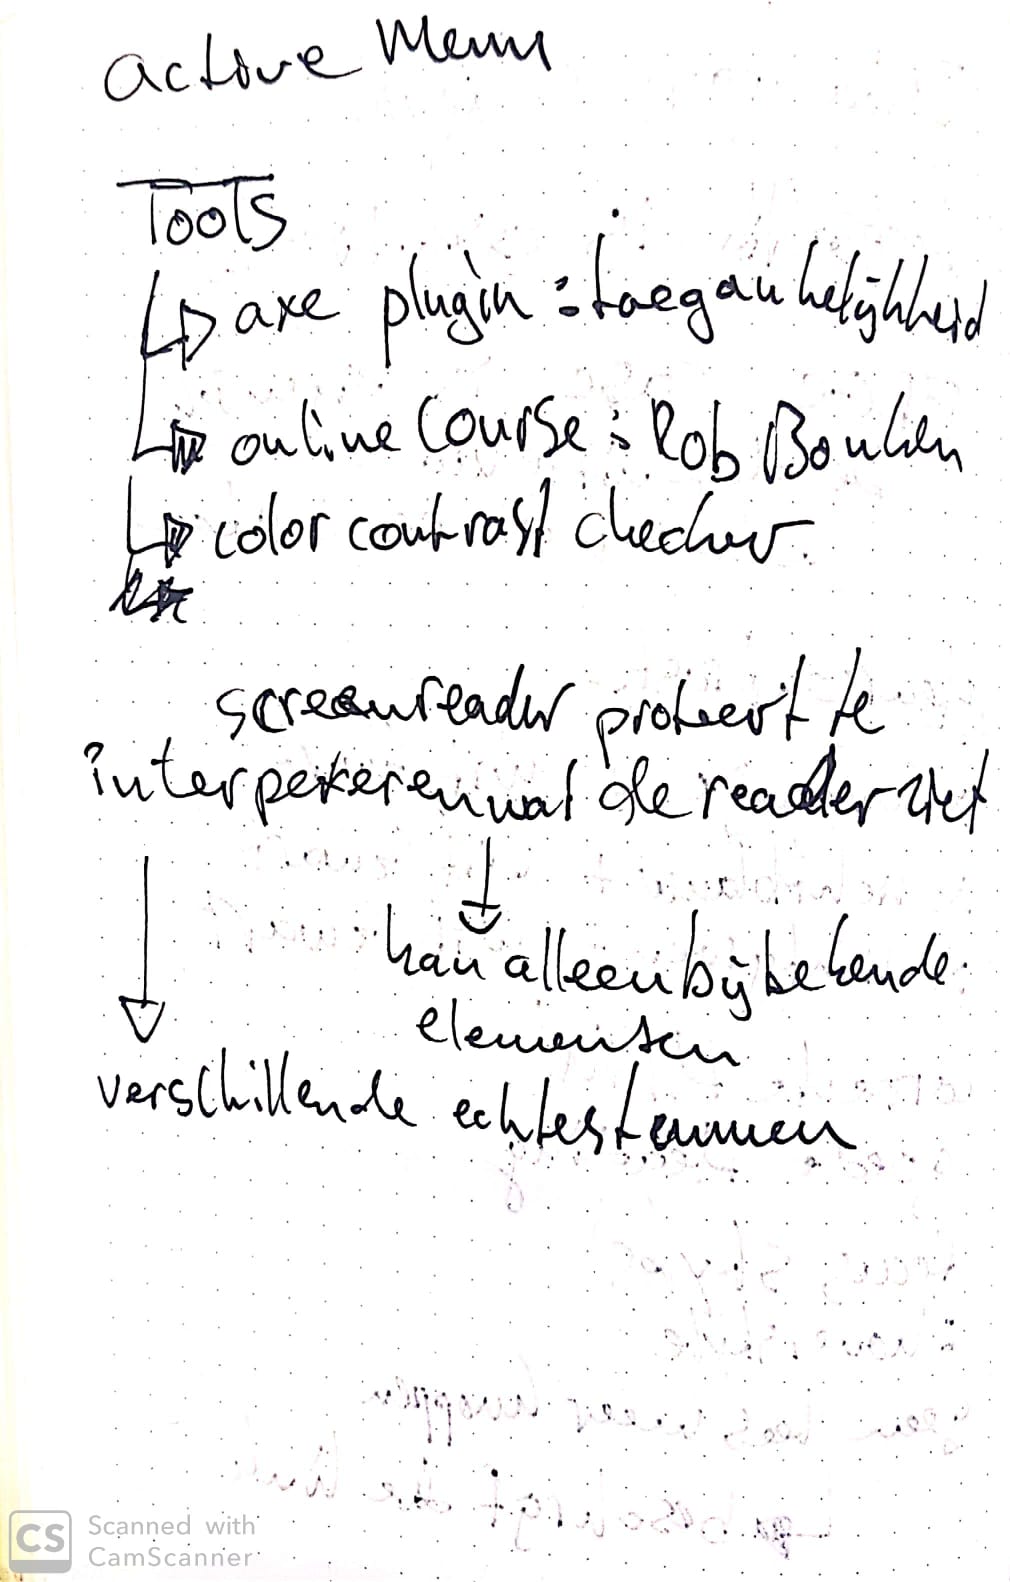 active Menu
Tools
axe plugin : toegankelijkheid
online course : Rob Bouken
color contrast checker.
screenreader probeert te
interpeteren wat de reader ziet
kan alleen bij bekende
elementen
verschillende echte stemmen
CS Scanned with
CamScanner